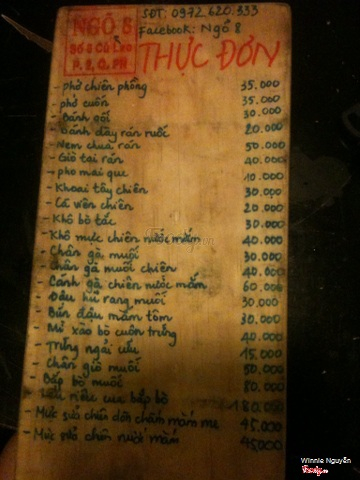 NGÕ 8
Số 8 Cù Lao
P. 2, Q. PN
SĐT: 0972 620.333
Facebook: Ngõ 8
THỰC ĐƠN
- phở chiên phồng 35.000
- phở cuốn 35.000
- Bánh gối 30.000
- Bánh đầy rán ruốc 20.000
- Nem chua rán 50.000
- Giò tai rán 40.000
- pho mai que 10.000
- Khoai tây chiên 30.000
- Cá viên chiên 20.000
- Khô bò tắc 30.000
- Khô mực chiên nước mắm 40.000
- Chân gà muối 30.000
- Chân gà muối chiên 40.000
- Cánh gà chiên nước mắm 60.000
- Đậu hũ rang muối 30.000
- Bún đậu mắm tôm 30.000
- Mì xào bò cuộn trứng 40.000
- Trứng ngải cứu 15.000
- Chân giò muối 50.000
- Bắp bò muối 80.000
- Lẩu riêu cua bắp bò 180.000
- Mực sữa chiên dòn chấm mắm me 45.000
- Mực sữa chiên nước mắm 45000
Winnie Nguyễn
Foody.vn